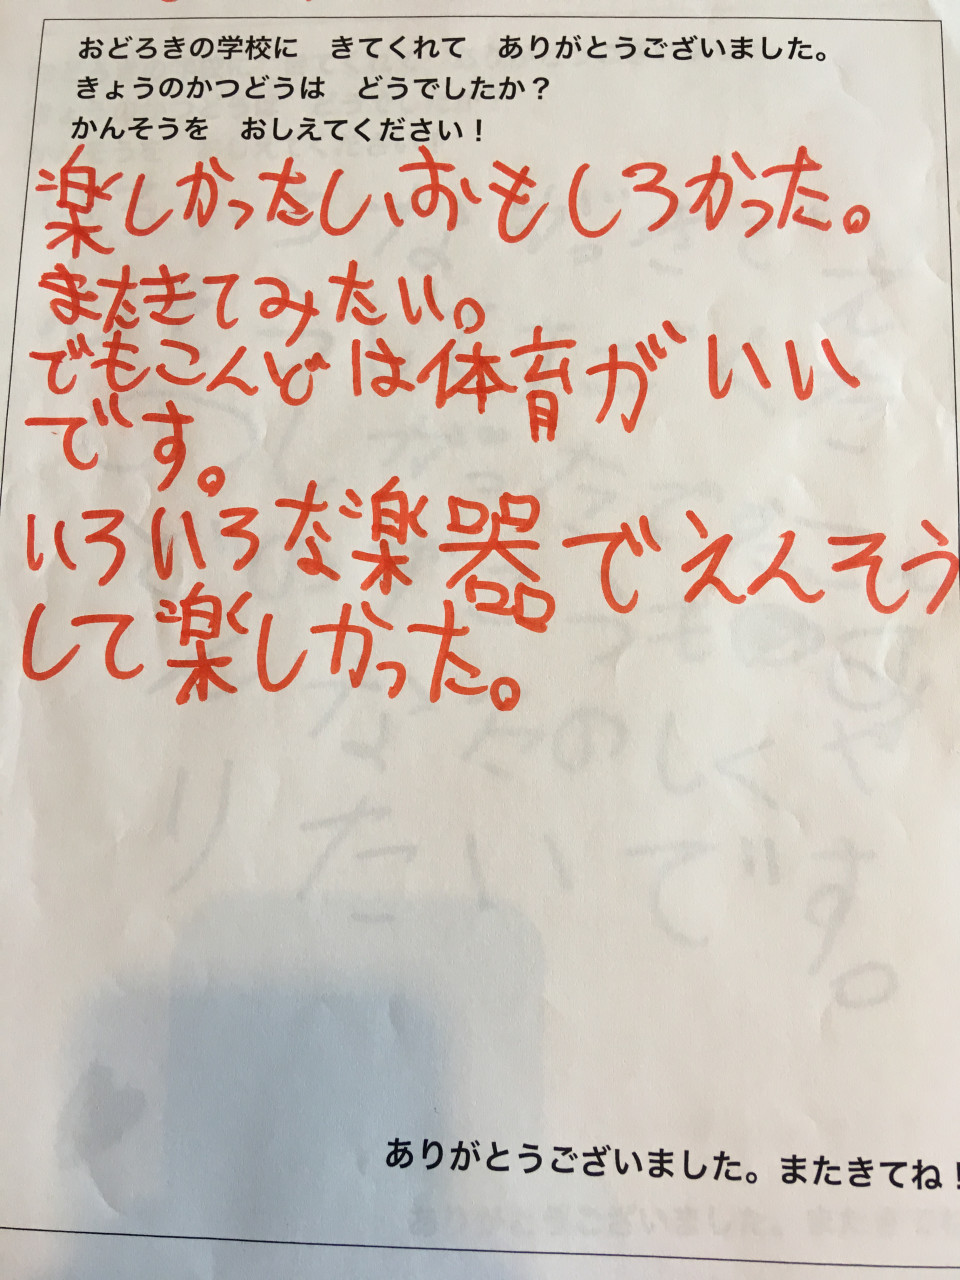 おどろきの学校に　きてくれて　ありがとうございました。
きょうのかつどうは　どうでしたか？
かんそうを　おしえてください！
楽しかったし、おもしろかった。
またきてみたい。
でもこんどは体育がいい
です。
いろいろな楽器でえんそう
して楽しかった。
ありがとうございました。またきてね！